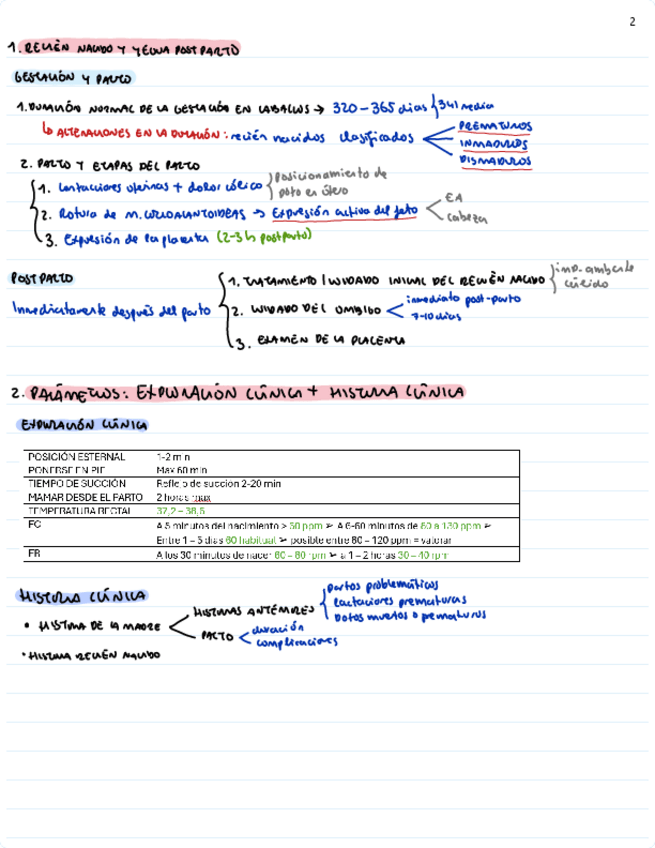 2
1. RECIÉN NACIDO Y YEGUA POSTPARTO
GESTACIÓN Y PARTO
1. DURACIÓN NORMAL DE LA GESTACIÓN EN CABALLOS → 320-365 días {341 media
↳ ALTERACIONES EN LA DURACIÓN: recién nacidos clasificados
PREMATUROS
INMADUROS
DISMADUROS
2. PARTO Y ETAPAS DEL PARTO
1. Contracciones uterinas + dolor cólico } Posicionamiento de
poto en útero
2. Rotura de M. CORIOALANTOIDEAS → Expresión activa del feto
EA
Cabeza
3. Expresión de la placenta (2-3h postparto)
POSTPARTO
Inmediatamente después del parto
1. TRATAMIENTO / CUIDADO INICIAL DEL RECIÉN NACIDO } imp. ambiente
cálido
2. CUIDADO DEL OMBLIGO
inmediato post-parto
7-10 días
3. EXAMEN DE LA PLACENTA
2. PARÁMETROS: EXPLORACIÓN CLÍNICA + HISTORIA CLÍNICA
EXPLORACIÓN CLÍNICA
POSICIÓN ESTERNAL 1-2 min
PONERSE EN PIE Max 60 min
TIEMPO DE SUCCIÓN Reflejo de succión 2-20 min
MAMAR DESDE EL PARTO 2 horas max
TEMPERATURA RECTAL 37,2 – 38,6
FC A 5 minutos del nacimiento > 60 ppm ➢ A 6-60 minutos de 80 a 130 ppm ➢
Entre 1 – 5 días 60 habitual ➢ posible entre 80 – 120 ppm = valorar
FR A los 30 minutos de nacer 60 – 80 rpm ➢ a 1 – 2 horas 30 – 40 rpm
HISTORIA CLÍNICA
• HISTORIA DE LA MADRE
HISTORIAS ANTERIORES
partos problemáticos
lactaciones prematuras
Potros muertos o prematuros
PARTO
duración
complicaciones
• HISTORIA RECIÉN NACIDO